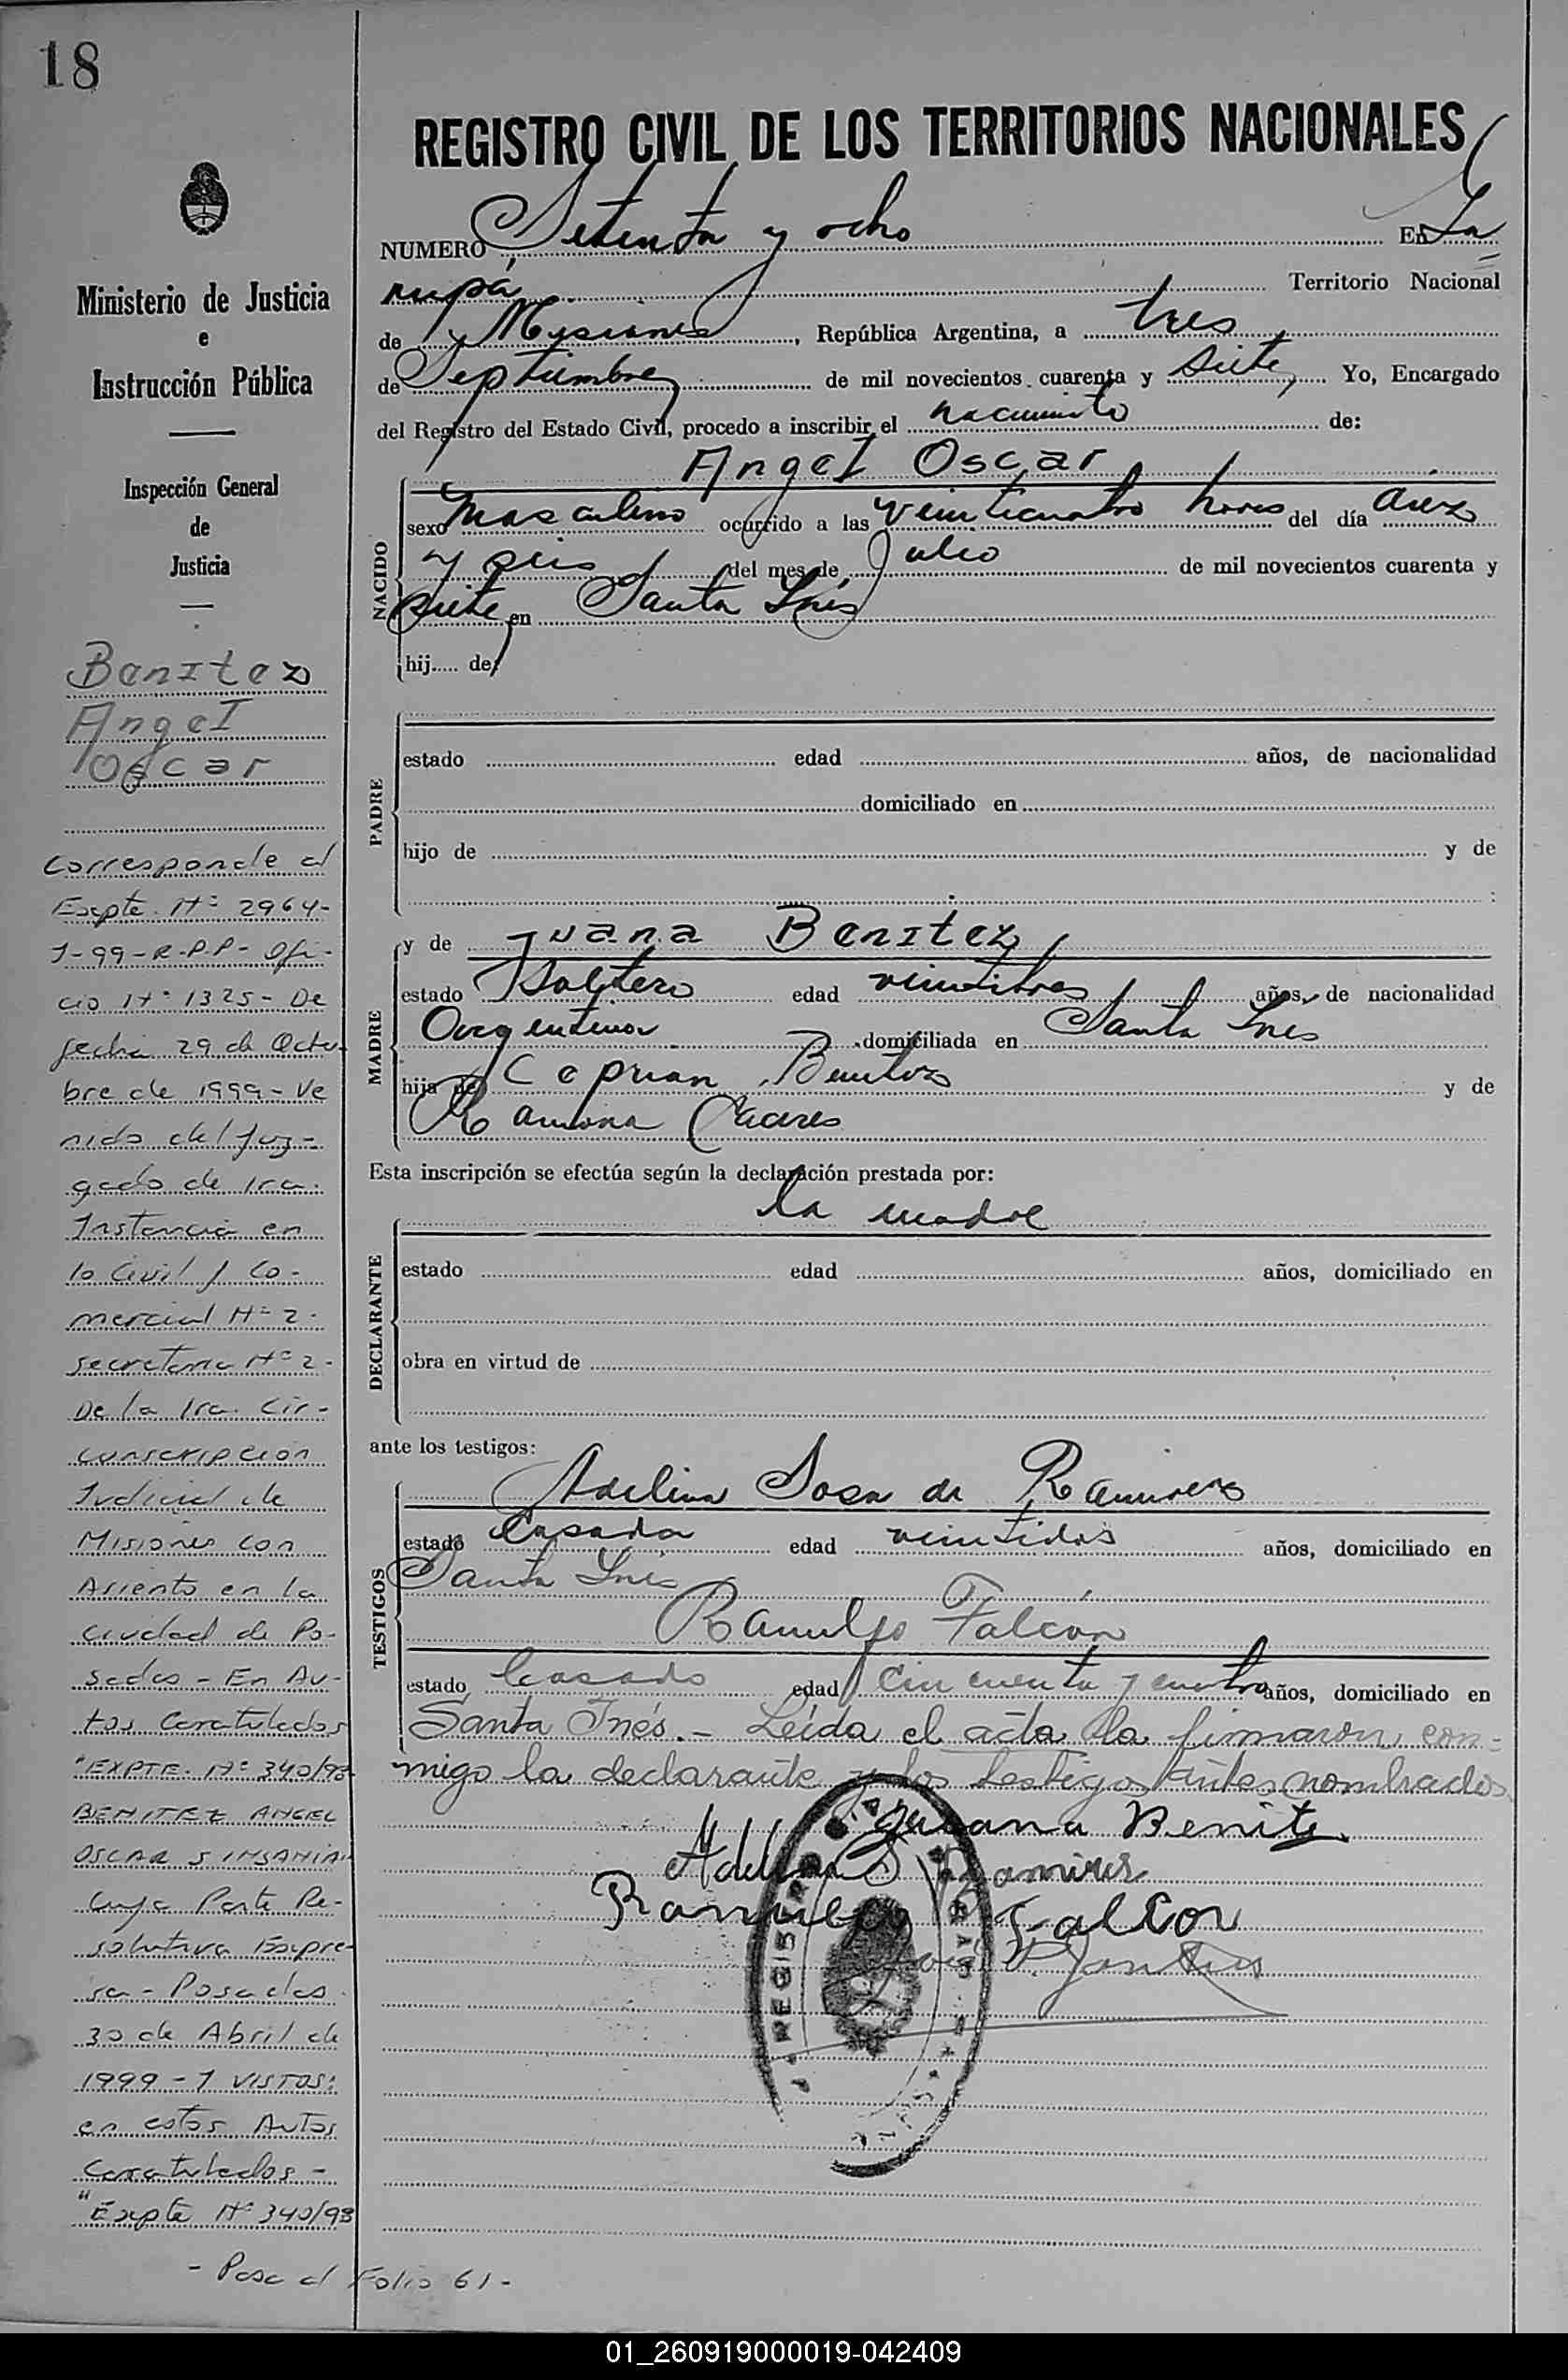 18
REGISTRO CIVIL DE LOS TERRITORIOS NACIONALES
Ministerio de Justicia
e
Instrucción Pública
Inspección General
de
Justicia
Benitez
Angel
Oscar
Corresponde al
Expte. Nº 2964-
J-99-R.P.P- Ofi-
cio Nº 1325- De
fecha 29 de Octu-
bre de 1999- Ve
nido del Juz-
gado de 1ra.
Instancia en
lo Civil y Co-
mercial Nº 2.
Secretaria Nº 2-
De la 1ra. Cir-
cunscripción
Judicial de
Misiones con
Asiento en la
Ciudad de Po-
sadas - En Au-
tos Caratulados
"EXPTE. Nº 340/98
BENITEZ ANGEL
OSCAR S INSANIA"
Cuya Parte Re-
solutiva Expre-
sa - Posadas
30 de Abril de
1999 - Y VISTOS:
en estos Autos
Caratulados -
"Expte Nº 340/98
- Pasa al Folio 61 -
NUMERO Setenta y ocho En Ya
rupá Territorio Nacional
de Misiones, República Argentina, a tres
de Septiembre de mil novecientos cuarenta y siete, Yo, Encargado
del Registro del Estado Civil, procedo a inscribir el nacimiento de:
NACIDO
Angel Oscar
sexo Masculino ocurrido a las veinticuatro horas del día diez
y seis del mes de Julio de mil novecientos cuarenta y
siete en Santa Inés
hij..... de
PADRE
estado edad años, de nacionalidad
domiciliado en
hijo de y de
MADRE
y de Juana Benitez
estado Soltera edad veintitres años, de nacionalidad
Argentina domiciliada en Santa Inés
hija de Ceprian Benitez y de
Ramona Caceres
Esta inscripción se efectúa según la declaración prestada por:
DECLARANTE
la madre
estado edad años, domiciliado en
obra en virtud de
ante los testigos:
TESTIGOS
Adelina Sosa de Ramirez
estado Casada edad veintidos años, domiciliado en
Santa Inés
Ranulfo Falcón
estado Casado edad cincuenta y cuatro años, domiciliado en
Santa Inés.- Leída el acta la firmaron con-
migo la declarante y los testigos antes nombrados
Juana Benite
Adelina S Ramires
Ranulfo Falcon
REGIS
01_260919000019-042409